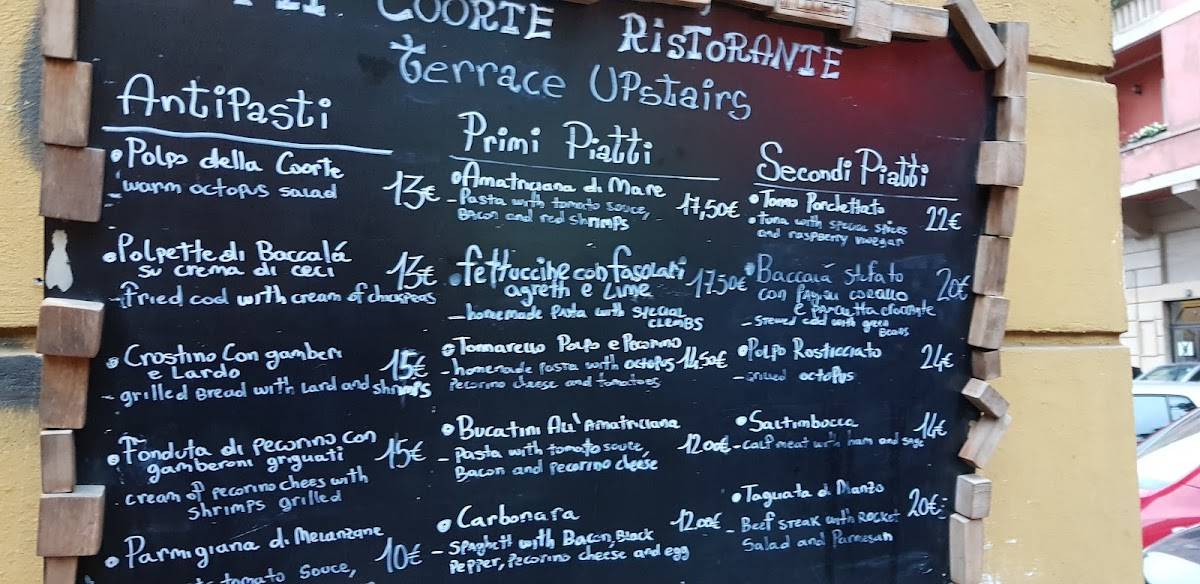 COORTE RISTORANTE
terrace UPstairs
AntiPasti
• Polpo della Coorte
- warm octopus salad
13€
• Polpette di Baccalá
su crema di ceci
13€
- fried cod with cream of chickpeas
• Crostino Con gamberi
e Lardo
15€
- grilled Bread with Lard and shrimps
• Fonduta di Pecorino con
gamberoni griguati
15€
cream of pecorino chees with
shrimps grilled
• Parmigiana di Melanzane
10€
tomato souce,
Primi Piatti
• Amatriciana di Mare
- Pasta with tomato souce,
Bacon and red shrimps
17,50€
• fettuccine con fasolari
agretti e Lime
17.50€
- homemade Pasta with special
CLEMBS
• Tonnarello Polpo e Pecorino
- homemade Pasta with octopus 14.50€
Pecorino cheese and tomatoes
• Bucatini All' Amatriciana
- Pasta with tomato souce,
Bacon and Pecorino cheese
12.00€
• Carbonara
- SPaghetti with Bacon, Black
Pepper, Pecorino cheese and egg
12.00€
Secondi Piatti
• Tonno Porchettato
• tuna with special spices
and raspberry vinegar
22€
• Baccalá stufato
con fagioli corallo
e pancetta croccante
20€
- Stewed cod with green
Beans
• Polpo Rosticciato
- grilled octopus
24€
• Saltimbocca
- calf meat with ham and sage
14€
• Tagliata di Manzo
- Beef steak with Rocket
Salad and Parmesan
20€